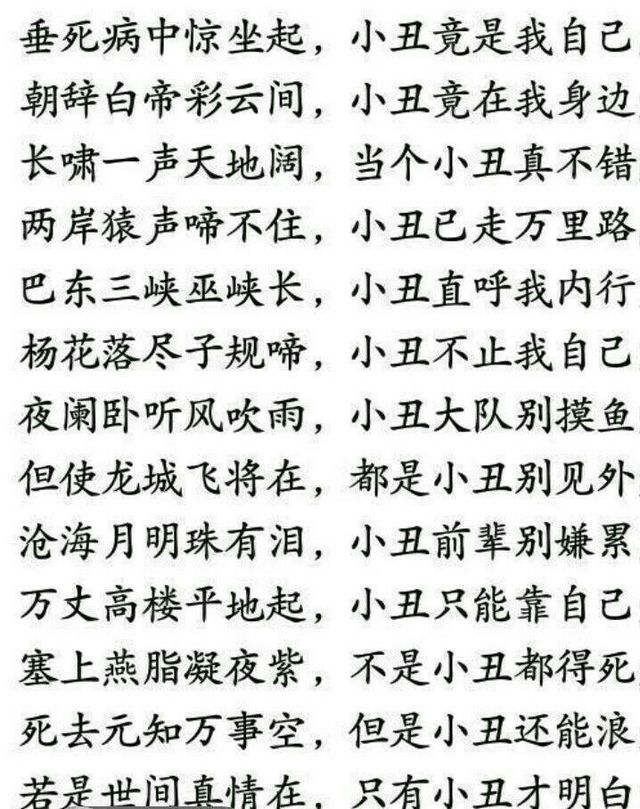 垂死病中惊坐起，小丑竟是我自己
朝辞白帝彩云间，小丑竟在我身边
长啸一声天地阔，当个小丑真不错
两岸猿声啼不住，小丑已走万里路
巴东三峡巫峡长，小丑直呼我内行
杨花落尽子规啼，小丑不止我自己
夜阑卧听风吹雨，小丑大队别摸鱼
但使龙城飞将在，都是小丑别见外
沧海月明珠有泪，小丑前辈别嫌累
万丈高楼平地起，小丑只能靠自己
塞上燕脂凝夜紫，不是小丑都得死
死去元知万事空，但是小丑还能浪
若是世间真情在，只有小丑才明白